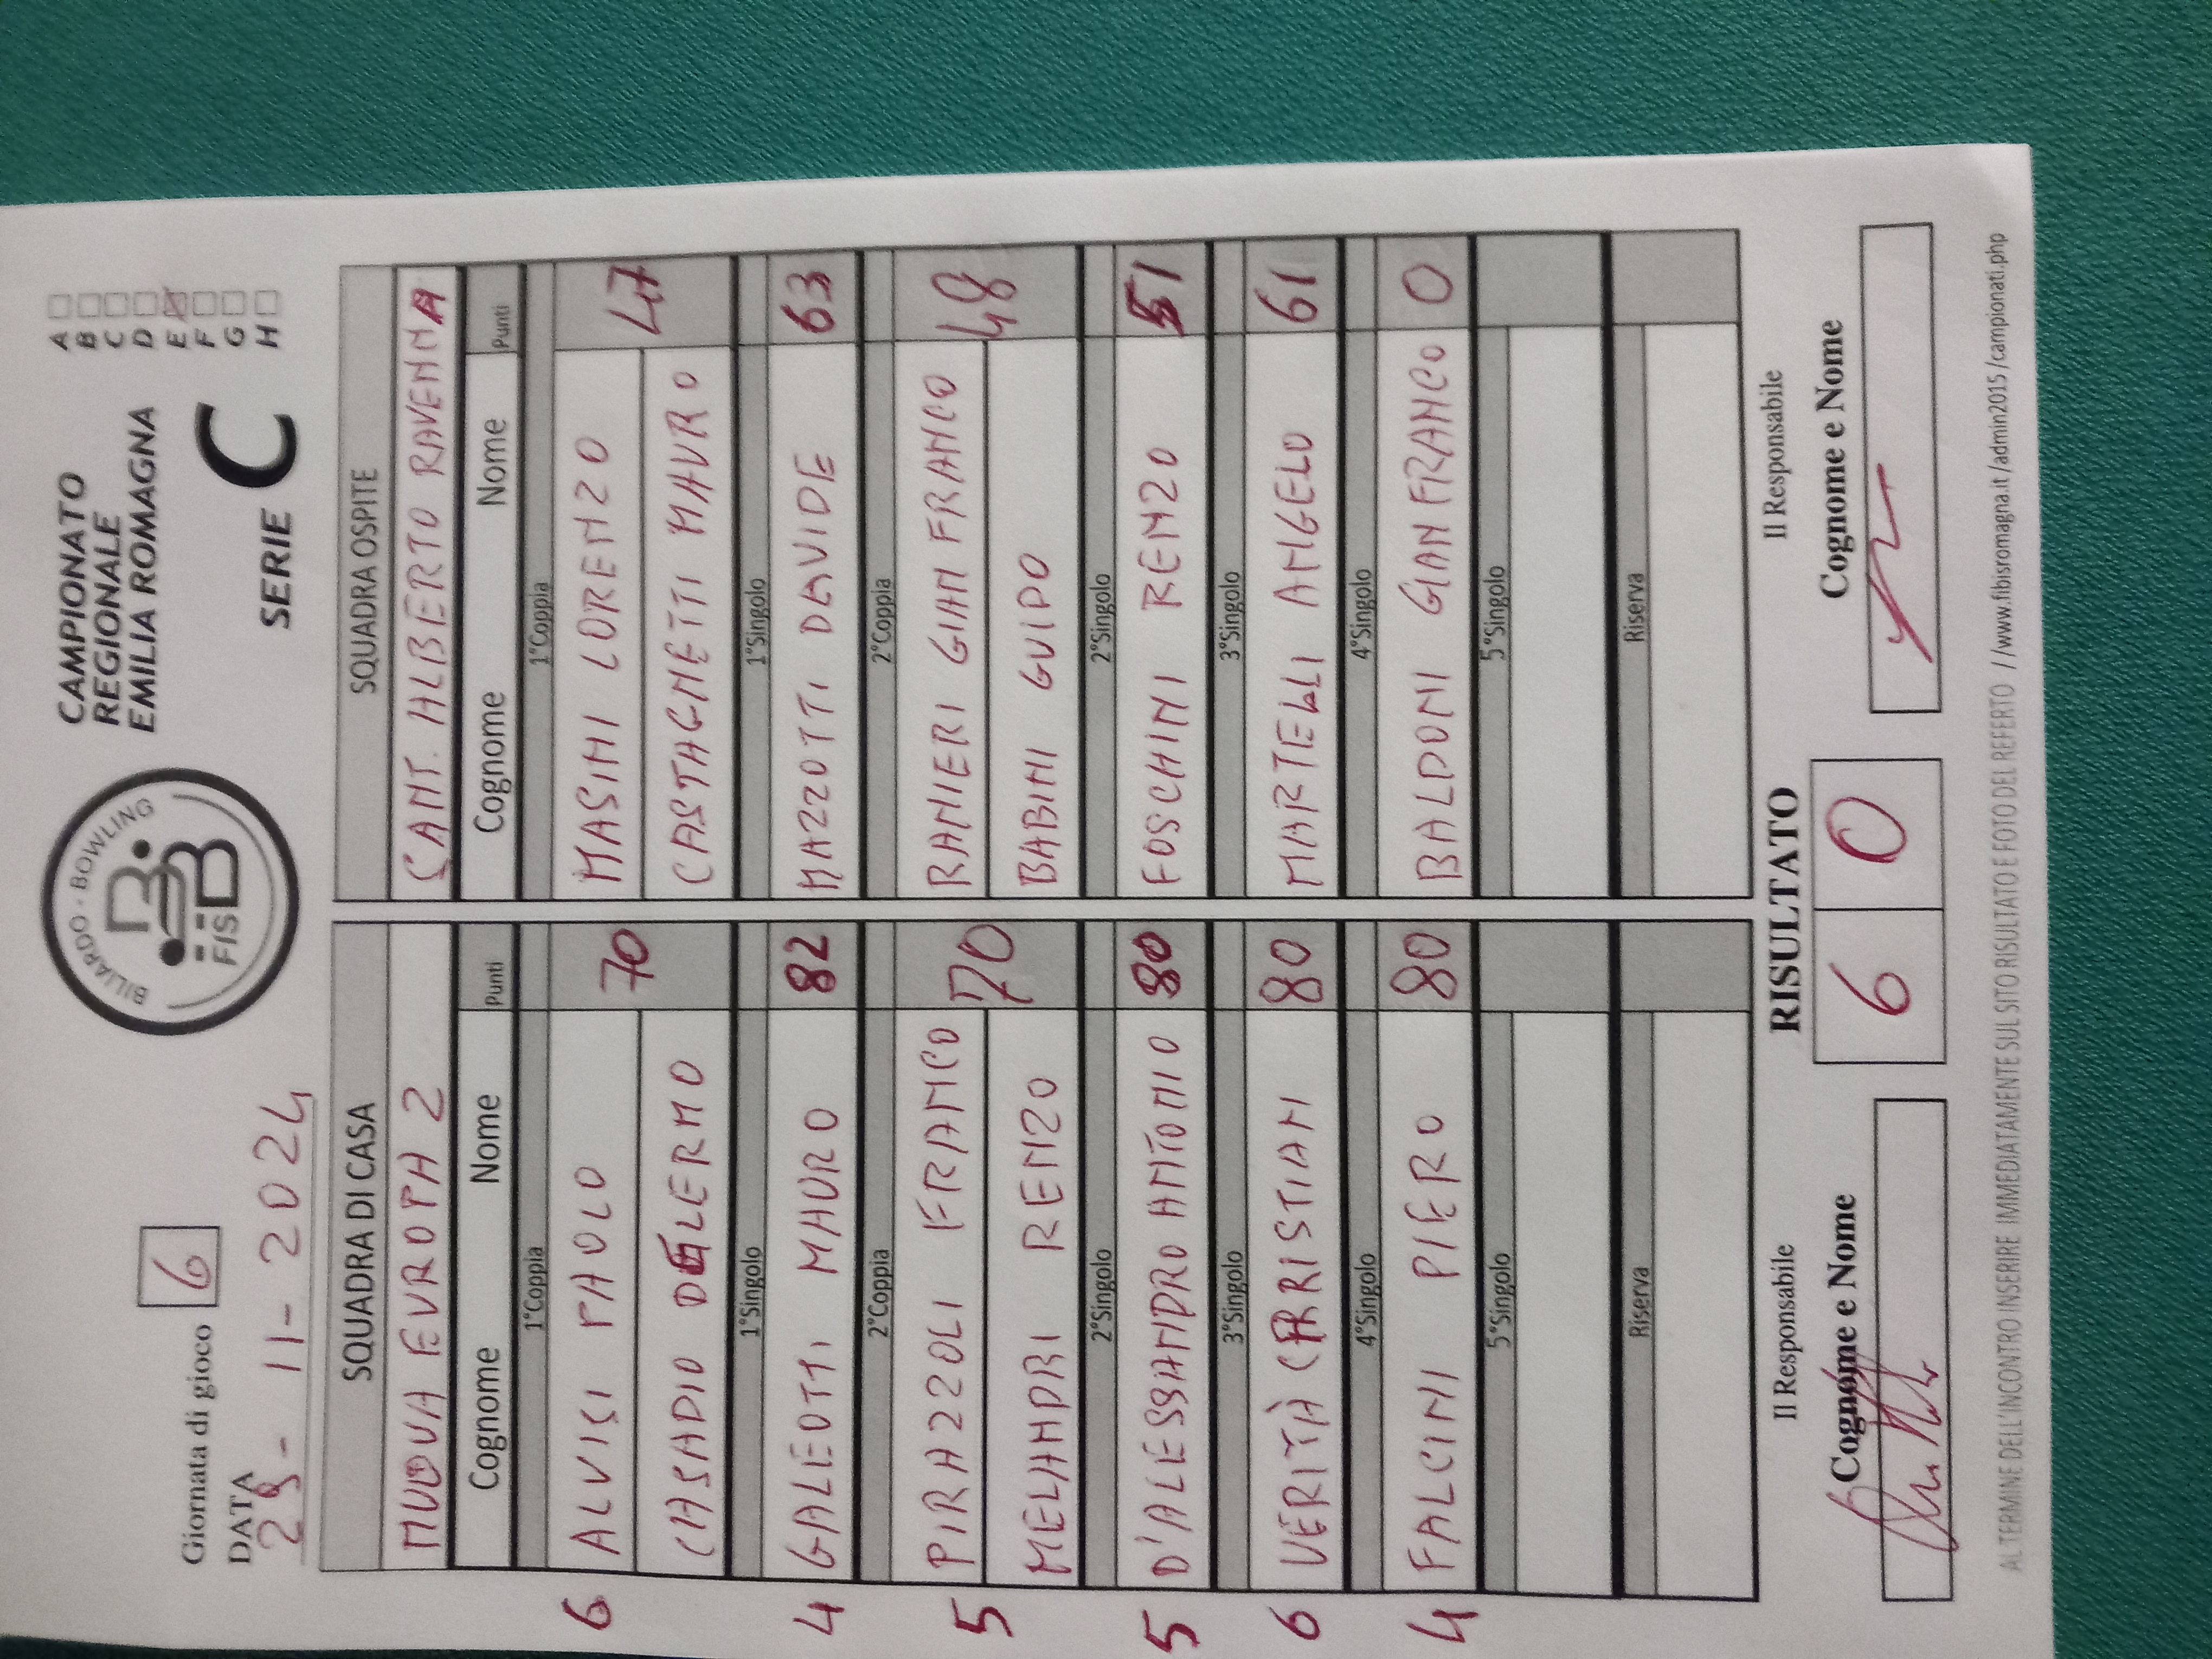 Giornata di gioco 6
DATA
28-11-2024
BILLIARDO - BOWLING
FISBB
CAMPIONATO
REGIONALE
EMILIA ROMAGNA
SERIE C
A
B
C
D
E
F
G
H
SQUADRA DI CASA
NUOVA EUROPA 2
Cognome Nome Punti
1°Coppia
6 ALVISI PAOLO 70
CASADIO DELERMO
1°Singolo
4 GALEOTTI MAURO 82
2°Coppia
5 PIRAZZOLI FRANCO 70
MELANDRI RENZO
2°Singolo
5 D'ALESSANDRO ANTONIO 80
3°Singolo
6 VERITÀ CRISTIAN 80
4°Singolo
4 FALCINI PIERO 80
5°Singolo
Riserva
SQUADRA OSPITE
SANT. ALBERTO RAVENNA
Cognome Nome Punti
1°Coppia
MASINI LORENZO 47
CASTAGNETTI MAURO
1°Singolo
MAZZOTTI DAVIDE 63
2°Coppia
RANIERI GIAN FRANCO 48
BABINI GUIDO
2°Singolo
FOSCHINI RENZO 51
3°Singolo
MARTELLI ANGELO 61
4°Singolo
BALDONI GIANFRANCO 0
5°Singolo
Riserva
Il Responsabile
Cognome e Nome
RISULTATO
6 0
Il Responsabile
Cognome e Nome
AL TERMINE DELL'INCONTRO INSERIRE IMMEDIATAMENTE SUL SITO RISULTATO E FOTO DEL REFERTO //www.fibisromagna.it/admin2015/campionati.php